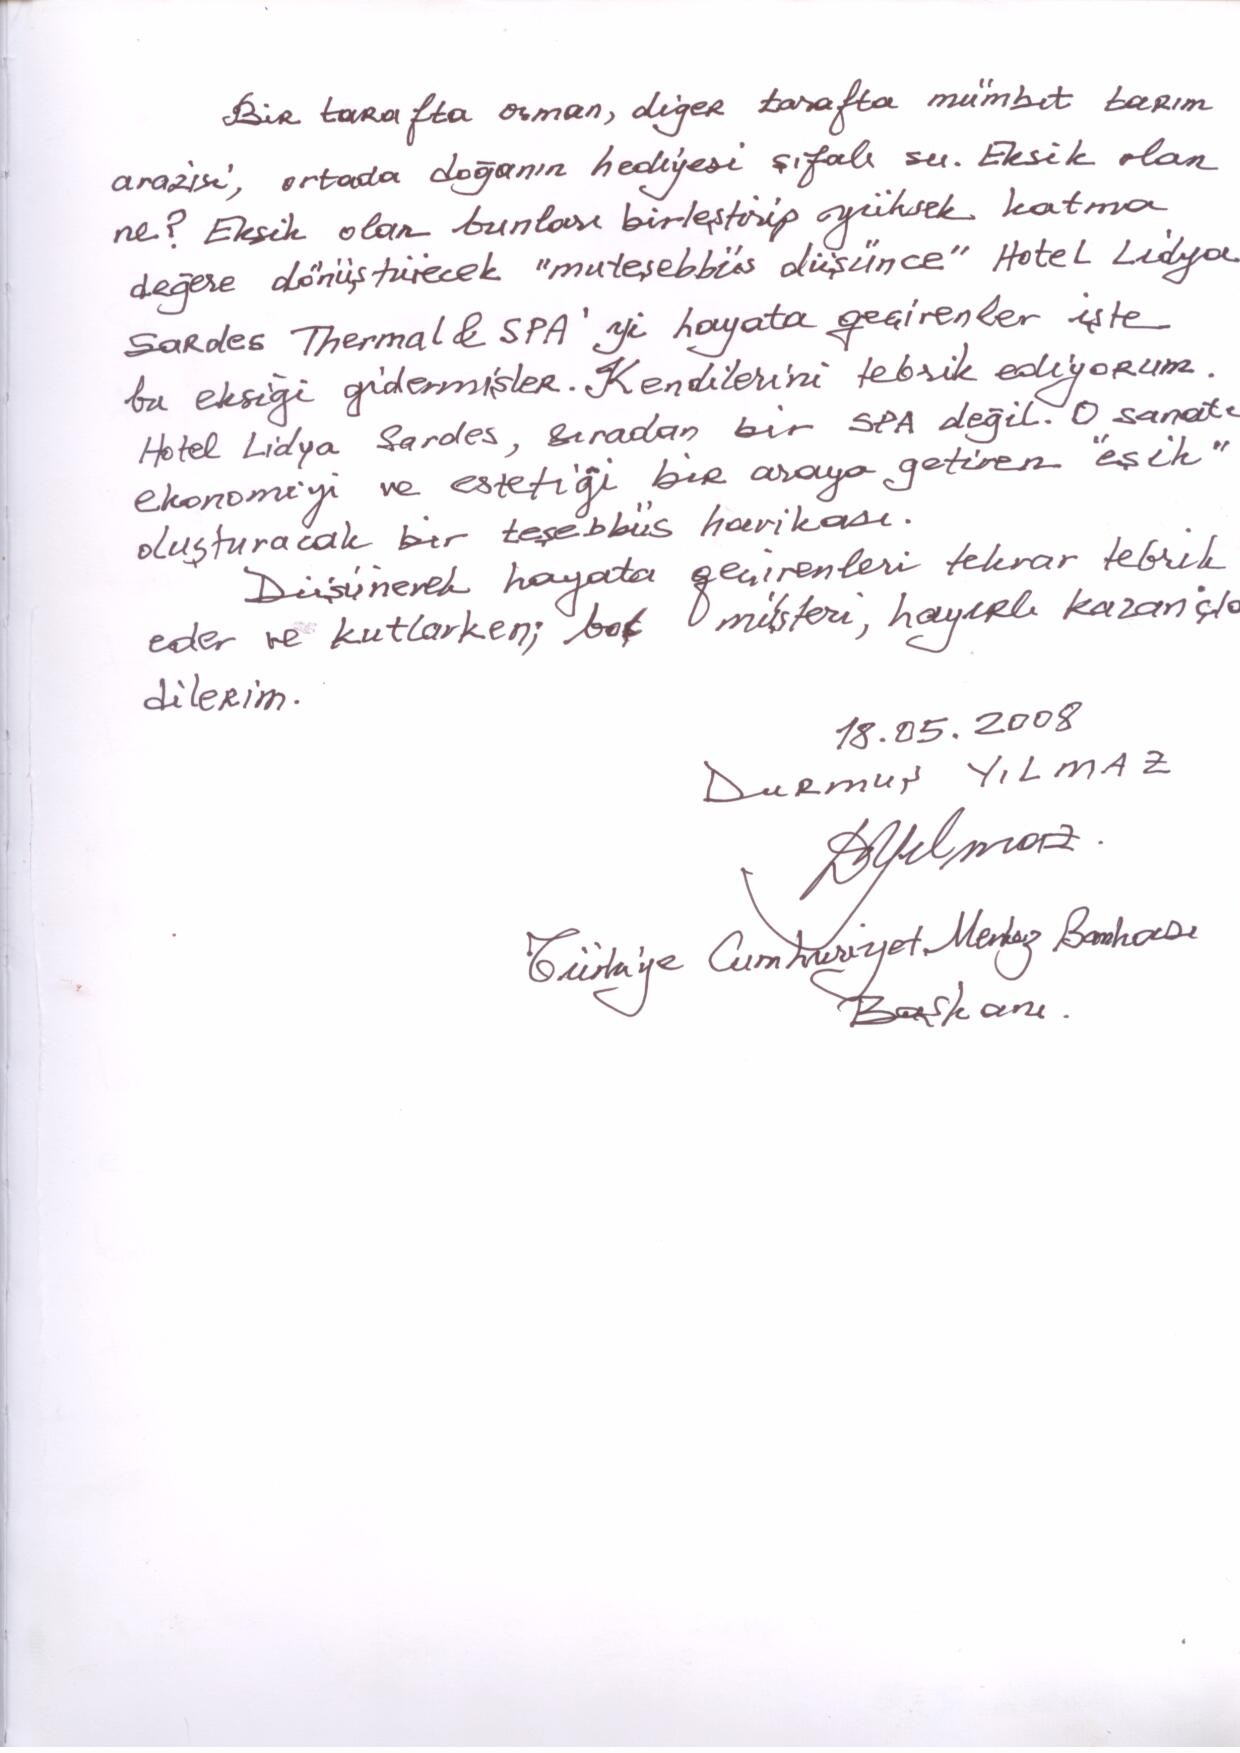 Bir tarafta orman, diğer tarafta mümbit tarım
arazisi, ortada doğanın hediyesi şifalı su. Eksik olan
ne? Eksik olan bunları birleştirip yüksek katma
değere dönüştürecek "muteşebbüs düşünce" Hotel Lidya
Sardes Thermal & SPA'yi hayata geçirenler işte
bu eksiği gidermişler. Kendilerini tebrik ediyorum.
Hotel Lidya Sardes, sıradan bir SPA değil. O sanatı
ekonomiyi ve estetiği bir araya getiren "eşik"
oluşturacak bir teşebbüs harikası.
Düşünerek hayata geçirenleri tekrar tebrik
eder ve kutlarken; bol müşteri, hayırlı kazançla
dilerim.
18.05.2008
Durmuş YILMAZ
DYılmaz.
Türkiye Cumhuriyet Merkez Bankası
Başkanı.